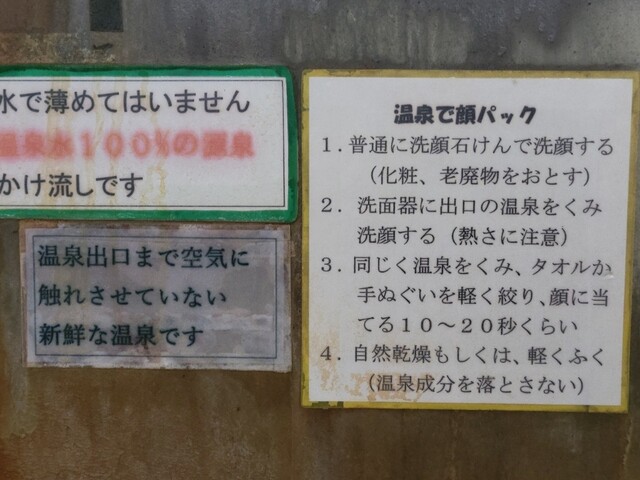 水で薄めてはいません
温泉水100%の源泉
かけ流しです
温泉出口まで空気に
触れさせていない
新鮮な温泉です
温泉で顔パック
1．普通に洗顔石けんで洗顔する
（化粧、老廃物をおとす）
2．洗面器に出口の温泉をくみ
洗顔する（熱さに注意）
3．同じく温泉をくみ、タオルか
手ぬぐいを軽く絞り、顔に当
てる10～20秒くらい
4．自然乾燥もしくは、軽くふく
（温泉成分を落とさない）